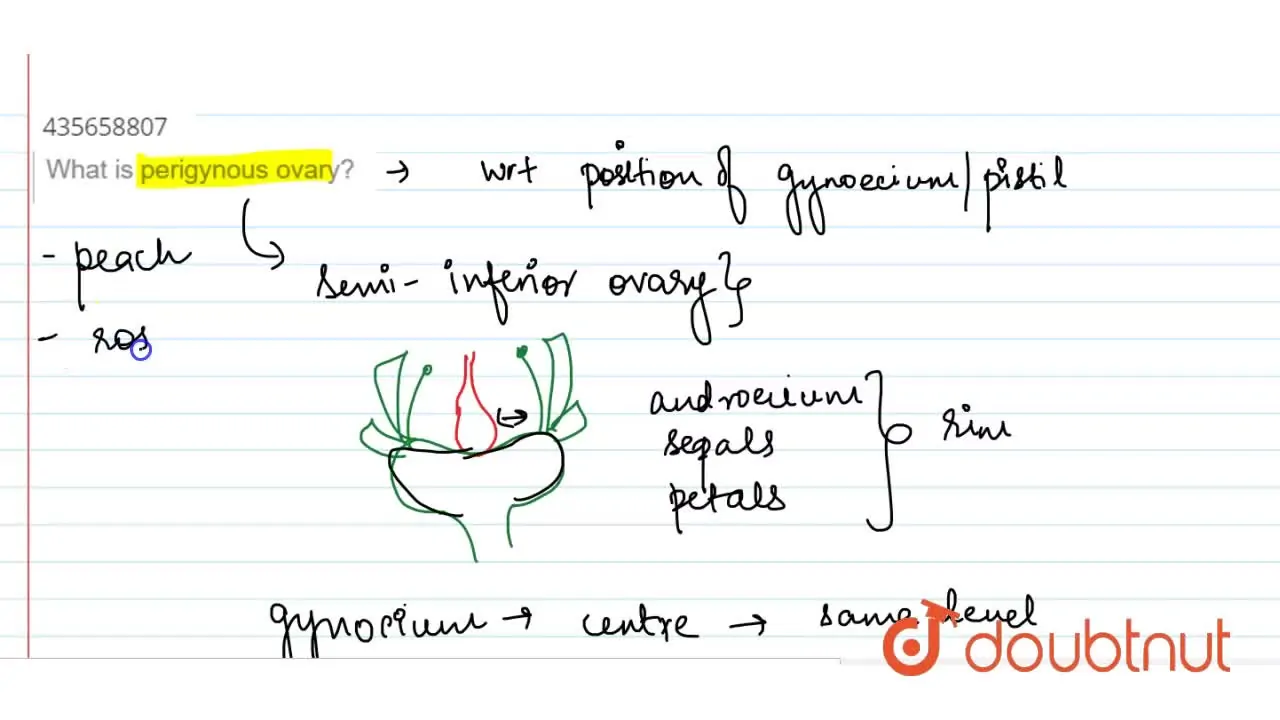 435658807
What is perigynous ovary? → wrt position of gynoecium/pistil
- peach
semi-inferior ovary
- ros
androecium
sepals
petals
rim
gynocium → centre → same level
doubtnut